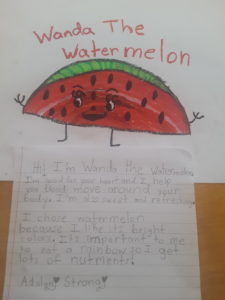 Wanda The
Watermelon
Hi I'm Wanda the Watermelon
I'm good for your heart and I help
your blood move around your
body. I'm also sweet and refreshing.
I chose watermelon
because I like its bright
colors. Its important to me
to eat a rainbow so I get
lots of nutrients!
Strong